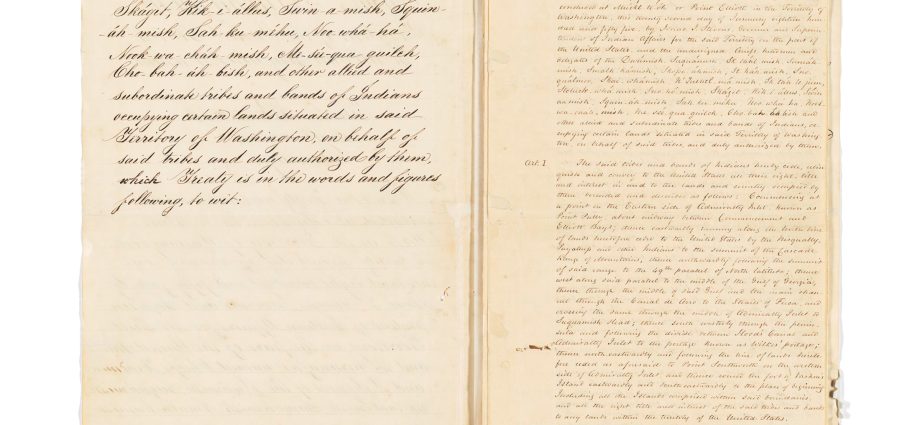 Skágit, Kik-i-állus, Swin-a-mish, Squin-
áh-mish, Sah-ku-méhu, Noo-whá-há,
Nook-wa-cháh-mish, Me-sée-qua-guilch,
Cho-bah-áh-bish, and other allied and
subordinate tribes and bands of Indians
occupying certain lands situated in said
Territory of Washington, on behalf of
said tribes and duly authorized by them,
which Treaty is in the words and figures
following, to wit:
or Point Elliott in the Territory of
Washington, this twenty second day of January eighteen hun-
dred and fifty five, by Isaac I. Stevens Governor and Superin-
tendent of Indian Affairs for the said Territory on the part of
the United States, and the undersigned chiefs headmen and
delegates of the
other allied and subordinate tribes and bands of Indians, oc-
cupying certain lands situated in said Territory of Washing-
ton, on behalf of said tribes and duly authorized by them.
Art. I The said tribes and bands of Indians hereby cede, relin-
quish and convey to the United States all their right, title
and interest in and to the lands and country occupied by
them bounded and described as follows: Commencing at
a point on the Eastern side of Admiralty Inlet known as
Point Pully, about midway between Commencement and
Elliott Bays; thence eastwardly running along the north line
of lands heretofore ceded to the United States by the Nisqually,
Puyallup and other Indians to the summit of the Cascade
Range of Mountains, thence northwardly following the summit
of said range to the 49th parallel of North latitude; thence
west along said parallel to the middle of the Gulf of Georgia,
thence through the middle of said Gulf and the main chan-
nel through the Canal de Arro to the Straits of Fuca, and
crossing the same through the middle of Admiralty Inlet to
Suquamish Head; thence south westerly through the penin-
sula and following the divide between Hood's Canal and
Admiralty Inlet to the portage known as Wilkes' portage;
thence north eastwardly and following the line of lands hereto-
fore ceded as aforesaid to Point Southworth on the western
side of Admiralty Inlet, and thence round the foot of Vashon's
Island eastwardly and southeastwardly to the place of beginning
Including all the Islands comprised within said boundaries,
and all the right title and interest of the said tribes and bands
to any lands within the territory of the United States.